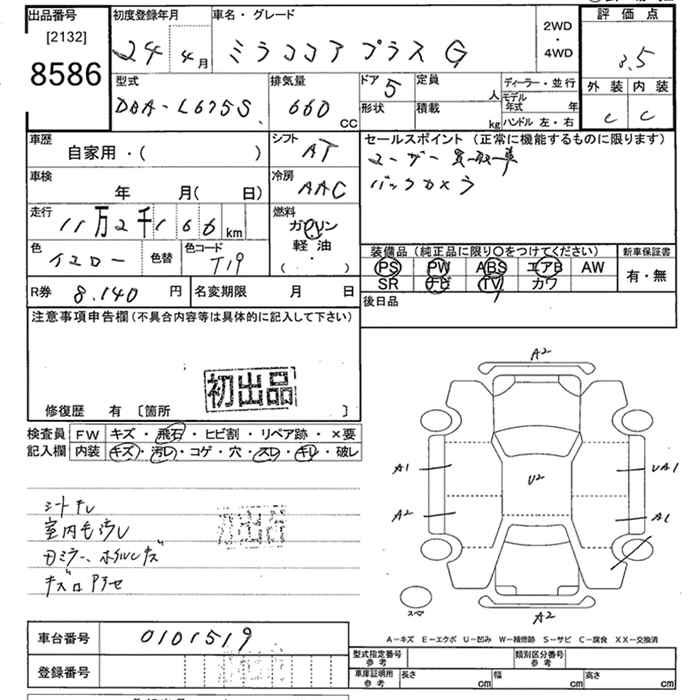 出品番号 初度登録年月 車名・グレード 2WD・4WD 評価点
[2132]
8586 24年 4月 ミラココア プラス G 3.5
外装 内装
C C
型式 排気量 ドア 定員 人 ディーラー・並行
DBA-L675S 660 CC 5 形状 積載 kg モデル年式 年
ハンドル 左・右
車歴 シフト セールスポイント (正常に機能するものに限ります)
自家用・( ) AT ユーザー買取車
車検 冷房 バックカメラ
年 月( 日) AAC
走行 燃料
11万2千166km ガソリン
軽油
( ・ )
色 色替 色コード 装備品 (純正品に限り○をつけてください) 新車保証書
イエロー T19 PS PW ABS エアB AW 有・無
SR ナビ TV カワ
R券 8.140円 名変期限 月 日 後日品
注意事項申告欄 (不具合内容等は具体的に記入して下さい)
初出品
修復歴 有 [箇所 ]
検査員 FW キズ・飛石・ヒビ割・リペア跡・×要
記入欄 内装 キズ・汚レ・コゲ・穴・スレ・キレ・破レ
シートキレ
室内毛汚レ
ホイルキズ
初出品
A2
A1 UA1
U2
A2 A1
スペア
A2
A-キズ E-エクボ U-凹み W-補修跡 S-サビ C-腐食 XX-交換済
車台番号 0101519
登録番号
型式指定番号 参考 類別区分番号 参考
車庫証明用 参考 長さ cm 幅 cm 高さ cm